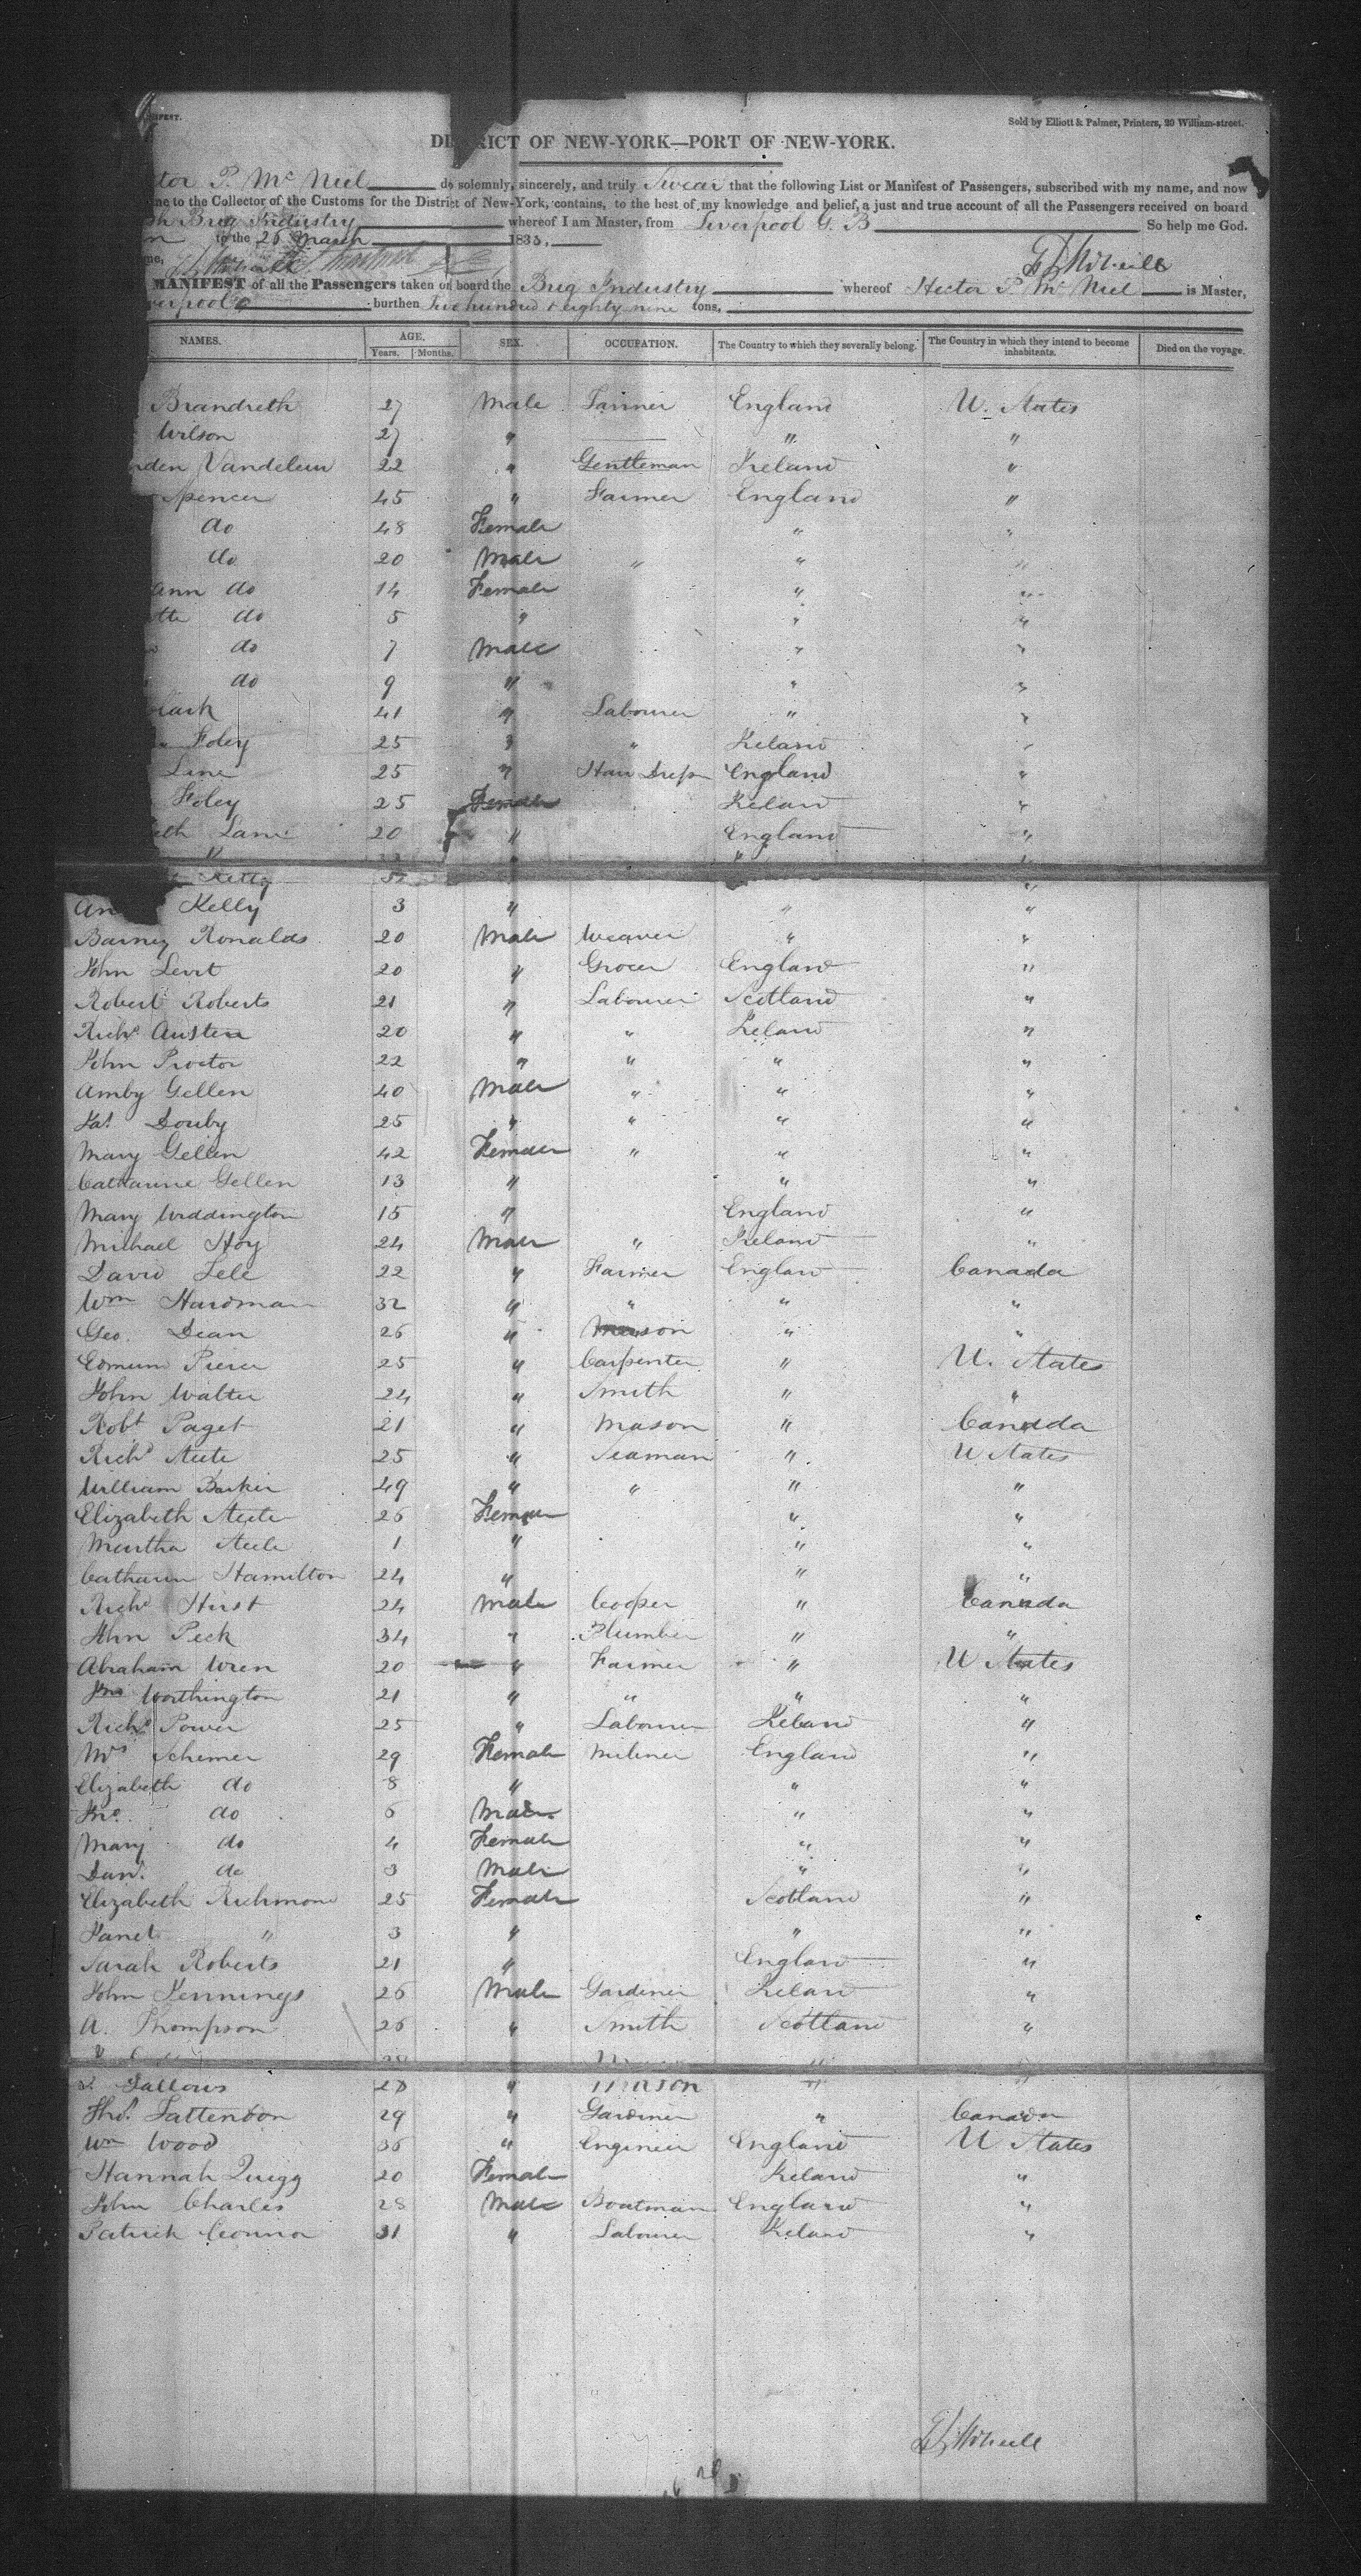 Sold by Elliott & Palmer, Printers, 20 William-street.
DISTRICT OF NEW-YORK—PORT OF NEW-YORK.
P. Mc Niel do solemnly, sincerely, and truly Swear that the following List or Manifest of Passengers, subscribed with my name, and now
to the Collector of the Customs for the District of New-York, contains, to the best of my knowledge and belief, a just and true account of all the Passengers received on board
Brig Industry whereof I am Master, from Liverpool G. B So help me God.
to the 25 March 1835,
MANIFEST of all the Passengers taken on board the Brig Industry whereof Hector P. Mc Niel is Master,
burthen Two hundred & eighty nine tons,
NAMES. AGE. Years. Months. SEX. OCCUPATION. The Country to which they severally belong. The Country in which they intend to become inhabitants. Died on the voyage.
Brandreth 27 Male England U. States
Wilson 27 " " "
Vandeleur 22 " Gentleman Ireland "
Spencer 45 " Farmer England "
do 48 Female " "
do 20 Male " " "
ann do 14 Female " "
do 5 " " "
do 7 Male " "
do 9 " " "
41 " Labourer " "
Foley 25 " " Ireland "
Lane 25 " England "
Foley 25 Female Ireland "
Lane 20 " England "
Kelly 3 " " "
Barney Ronalds 20 Male Weaver " "
John 20 " Grocer England "
Robert Roberts 21 " Labourer Scotland "
Richd Austen 20 " " Ireland "
John Proctor 22 " " " "
Amby Gellen 40 Male " " "
Pat Douby 25 " " " "
Mary Gellen 42 Female " " "
Catharine Gellen 13 " " "
Mary Widdington 15 " England "
Michael Hoy 24 Male " Ireland "
David Lele 22 " Farmer England Canada
Wm Hardman 32 " " " "
Geo. Dean 26 " Mason " "
Edmund Pierce 25 " Carpenter " U. States
John Walter 24 " Smith " "
Robt Paget 21 " Mason " Canada
Richd Steele 25 " Seaman " U States
William Barker 49 " " " "
Elizabeth Steele 26 Female " "
Martha Steele 1 " " "
Catharin Hamilton 24 " " "
Richd Hirst 24 Male Cooper " Canada
John Peck 34 " Plumber " "
Abraham Wren 20 " Farmer " U States
Jno Worthington 21 " " " "
Richd Power 25 " Labourer Ireland "
Mrs Schemer 29 Female Miliner England "
Elizabeth do 8 " " "
Jno. do 6 Male " "
Mary do 4 Female " "
Danl. do 3 Male " "
Elizabeth Richmond 25 Female Scotland "
Janet " 3 " " "
Sarah Roberts 21 " England "
John Jennings 26 Male Gardiner Ireland "
A. Thompson 26 " Smith Scotland "
Fallows 28 " Mason " "
Thos. Lattendon 29 " Gardiner " Canada
Wm Wood 36 " Engineer England U States
Hannah Quigg 20 Female Ireland "
John Charles 28 Male Boatman England "
Patrick Connor 31 " Labourer Ireland "